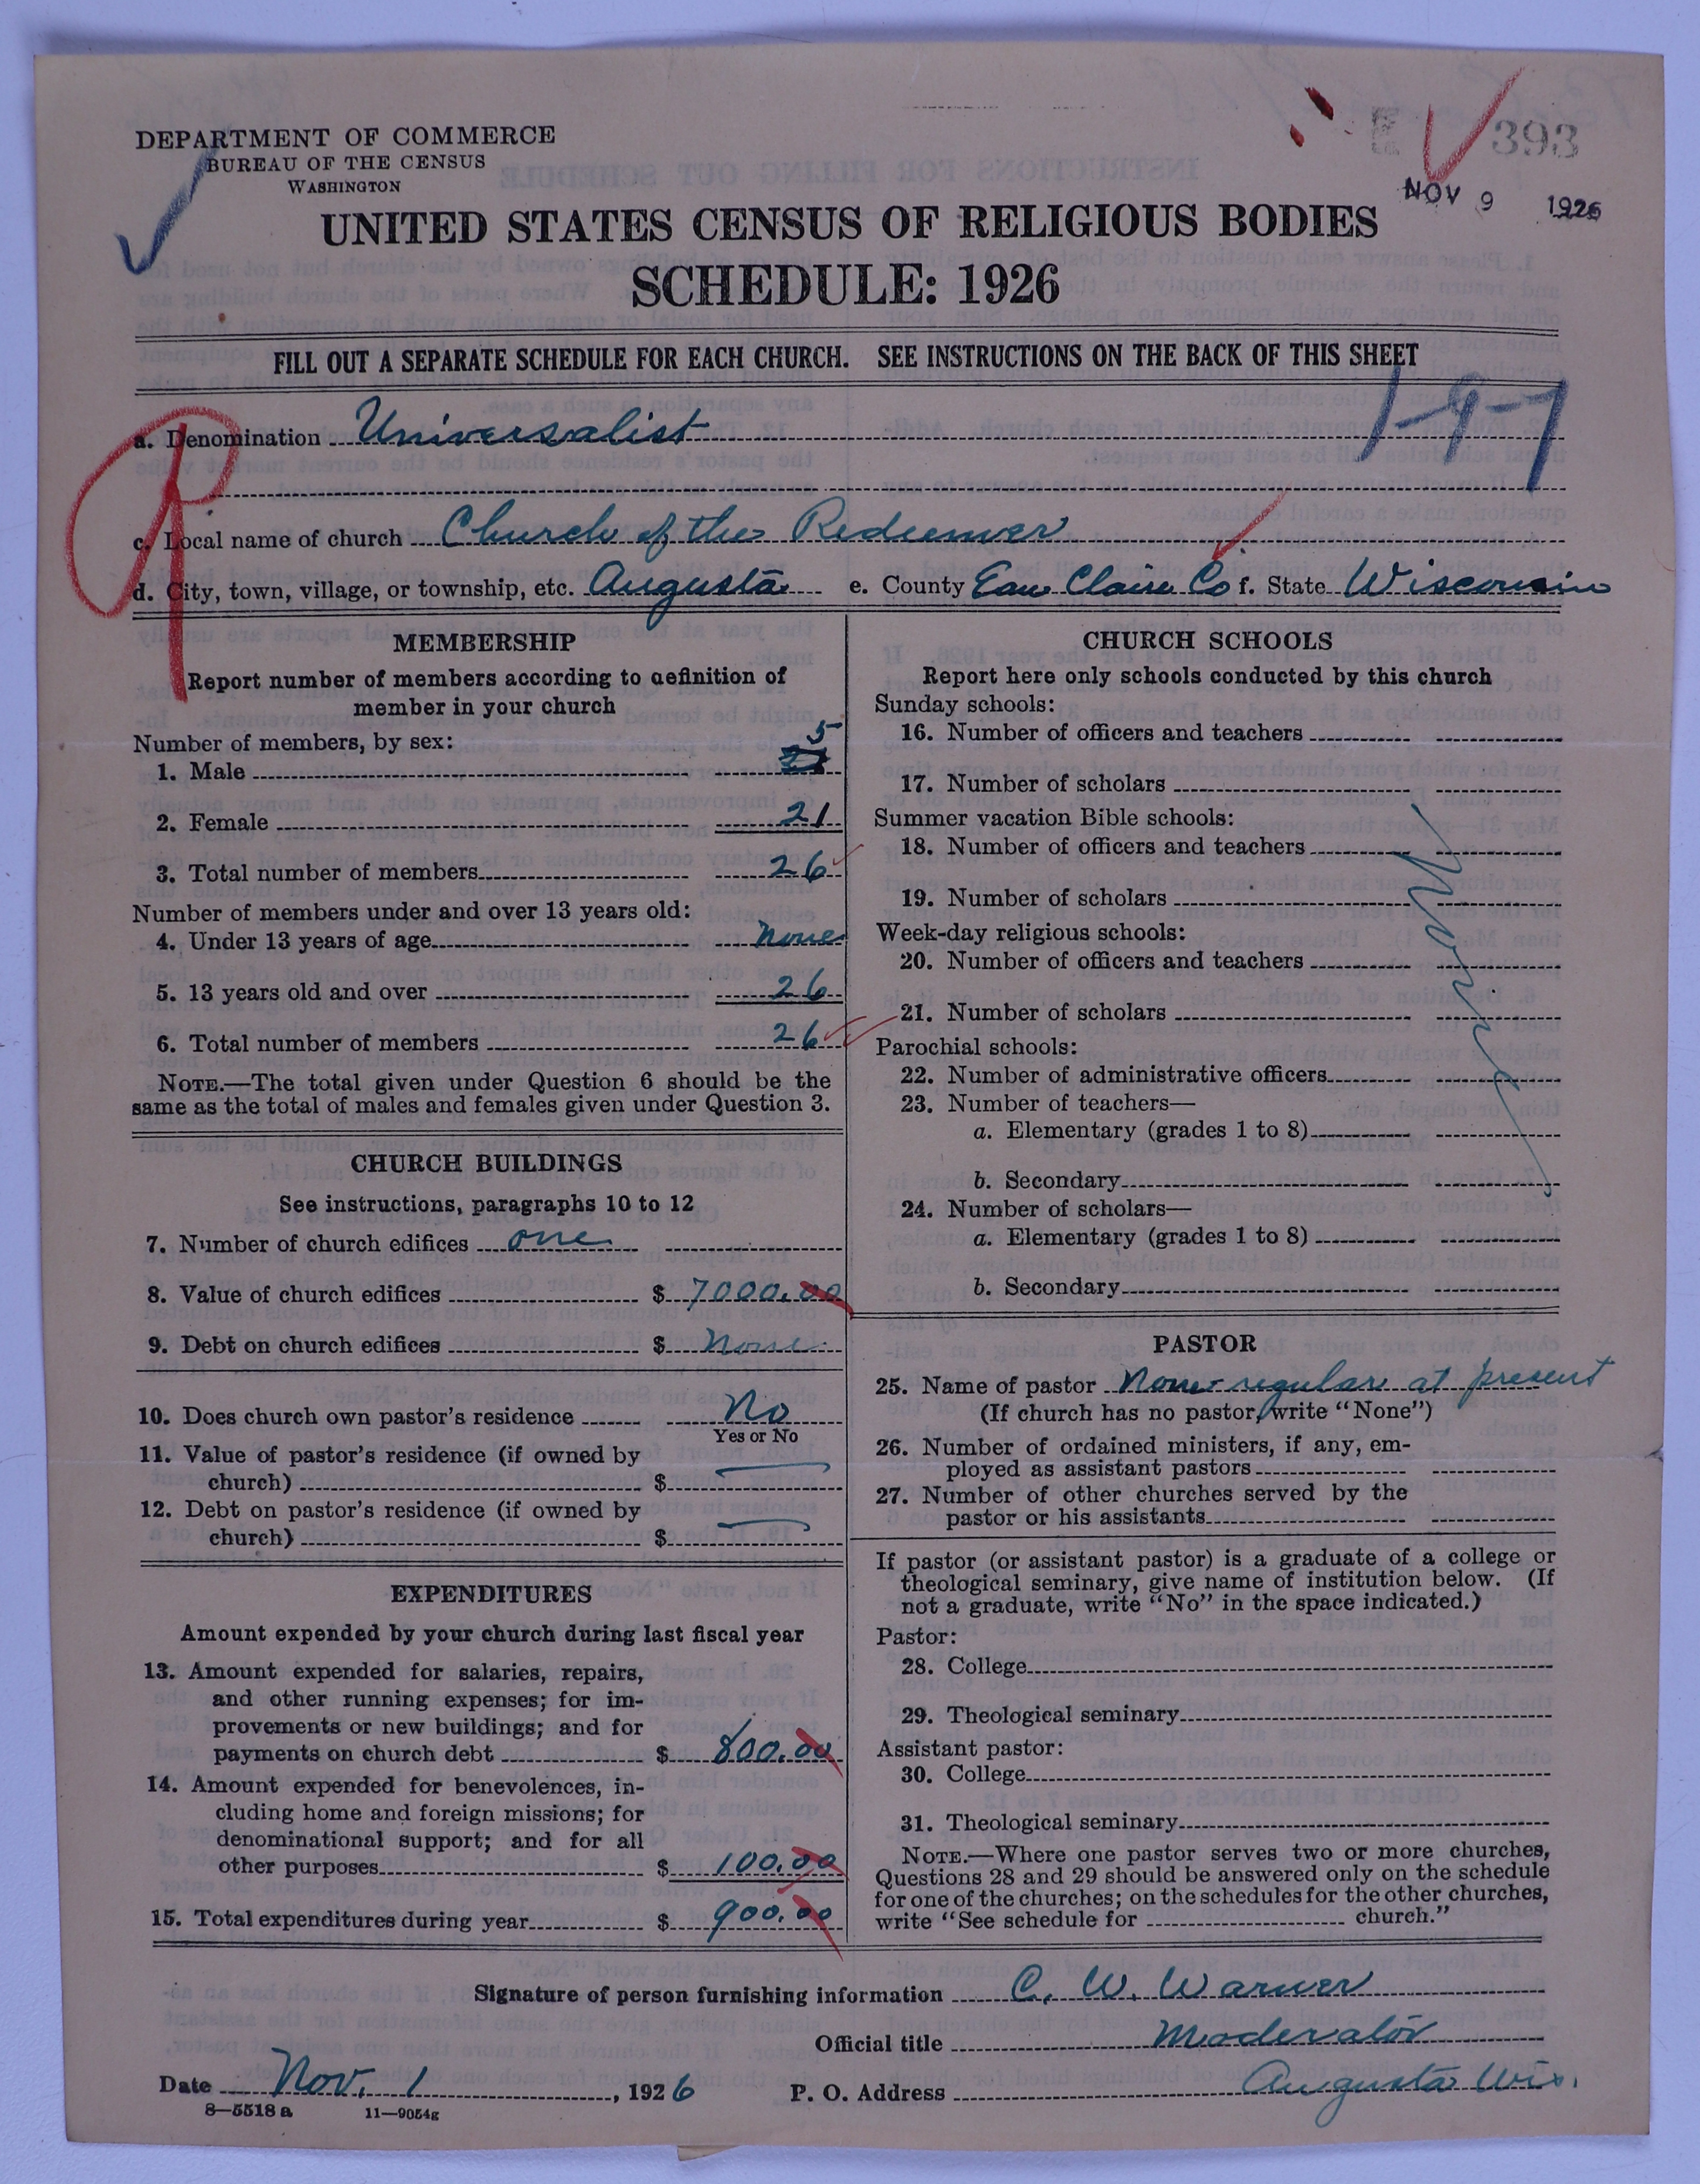 393
NOV 9 1926
DEPARTMENT OF COMMERCE
BUREAU OF THE CENSUS
WASHINGTON
UNITED STATES CENSUS OF RELIGIOUS BODIES
SCHEDULE: 1926
FILL OUT A SEPARATE SCHEDULE FOR EACH CHURCH. SEE INSTRUCTIONS ON THE BACK OF THIS SHEET
1-9-7
a. Denomination Universalist
c. Local name of church Church of the Redeemer
d. City, town, village, or township, etc. Augusta e. County Eau Claire Co f. State Wisconsin
MEMBERSHIP
Report number of members according to definition of
member in your church
Number of members, by sex:
1. Male 5
2. Female 21
3. Total number of members 26
Number of members under and over 13 years old:
4. Under 13 years of age none
5. 13 years old and over 26
6. Total number of members 26
NOTE.—The total given under Question 6 should be the
same as the total of males and females given under Question 3.
CHURCH BUILDINGS
See instructions, paragraphs 10 to 12
7. Number of church edifices one
8. Value of church edifices $ 7000.00
9. Debt on church edifices $ None
10. Does church own pastor's residence No
Yes or No
11. Value of pastor's residence (if owned by
church) $
12. Debt on pastor's residence (if owned by
church) $
EXPENDITURES
Amount expended by your church during last fiscal year
13. Amount expended for salaries, repairs,
and other running expenses; for im-
provements or new buildings; and for
payments on church debt $ 800.00
14. Amount expended for benevolences, in-
cluding home and foreign missions; for
denominational support; and for all
other purposes $ 100.00
15. Total expenditures during year $ 900.00
CHURCH SCHOOLS
Report here only schools conducted by this church
Sunday schools:
16. Number of officers and teachers
17. Number of scholars
Summer vacation Bible schools:
18. Number of officers and teachers
19. Number of scholars
Week-day religious schools:
20. Number of officers and teachers
21. Number of scholars
None
Parochial schools:
22. Number of administrative officers
23. Number of teachers—
a. Elementary (grades 1 to 8)
b. Secondary
24. Number of scholars—
a. Elementary (grades 1 to 8)
b. Secondary
PASTOR
25. Name of pastor None regular at present
(If church has no pastor, write "None")
26. Number of ordained ministers, if any, em-
ployed as assistant pastors
27. Number of other churches served by the
pastor or his assistants
If pastor (or assistant pastor) is a graduate of a college or
theological seminary, give name of institution below. (If
not a graduate, write "No" in the space indicated.)
Pastor:
28. College
29. Theological seminary
Assistant pastor:
30. College
31. Theological seminary
NOTE.—Where one pastor serves two or more churches,
Questions 28 and 29 should be answered only on the schedule
for one of the churches; on the schedules for the other churches,
write "See schedule for church."
Signature of person furnishing information C. W. Warner
Official title Moderator
Date Nov. 1, 1926 P. O. Address Augusta Wis.
8—5518 a 11—9054g